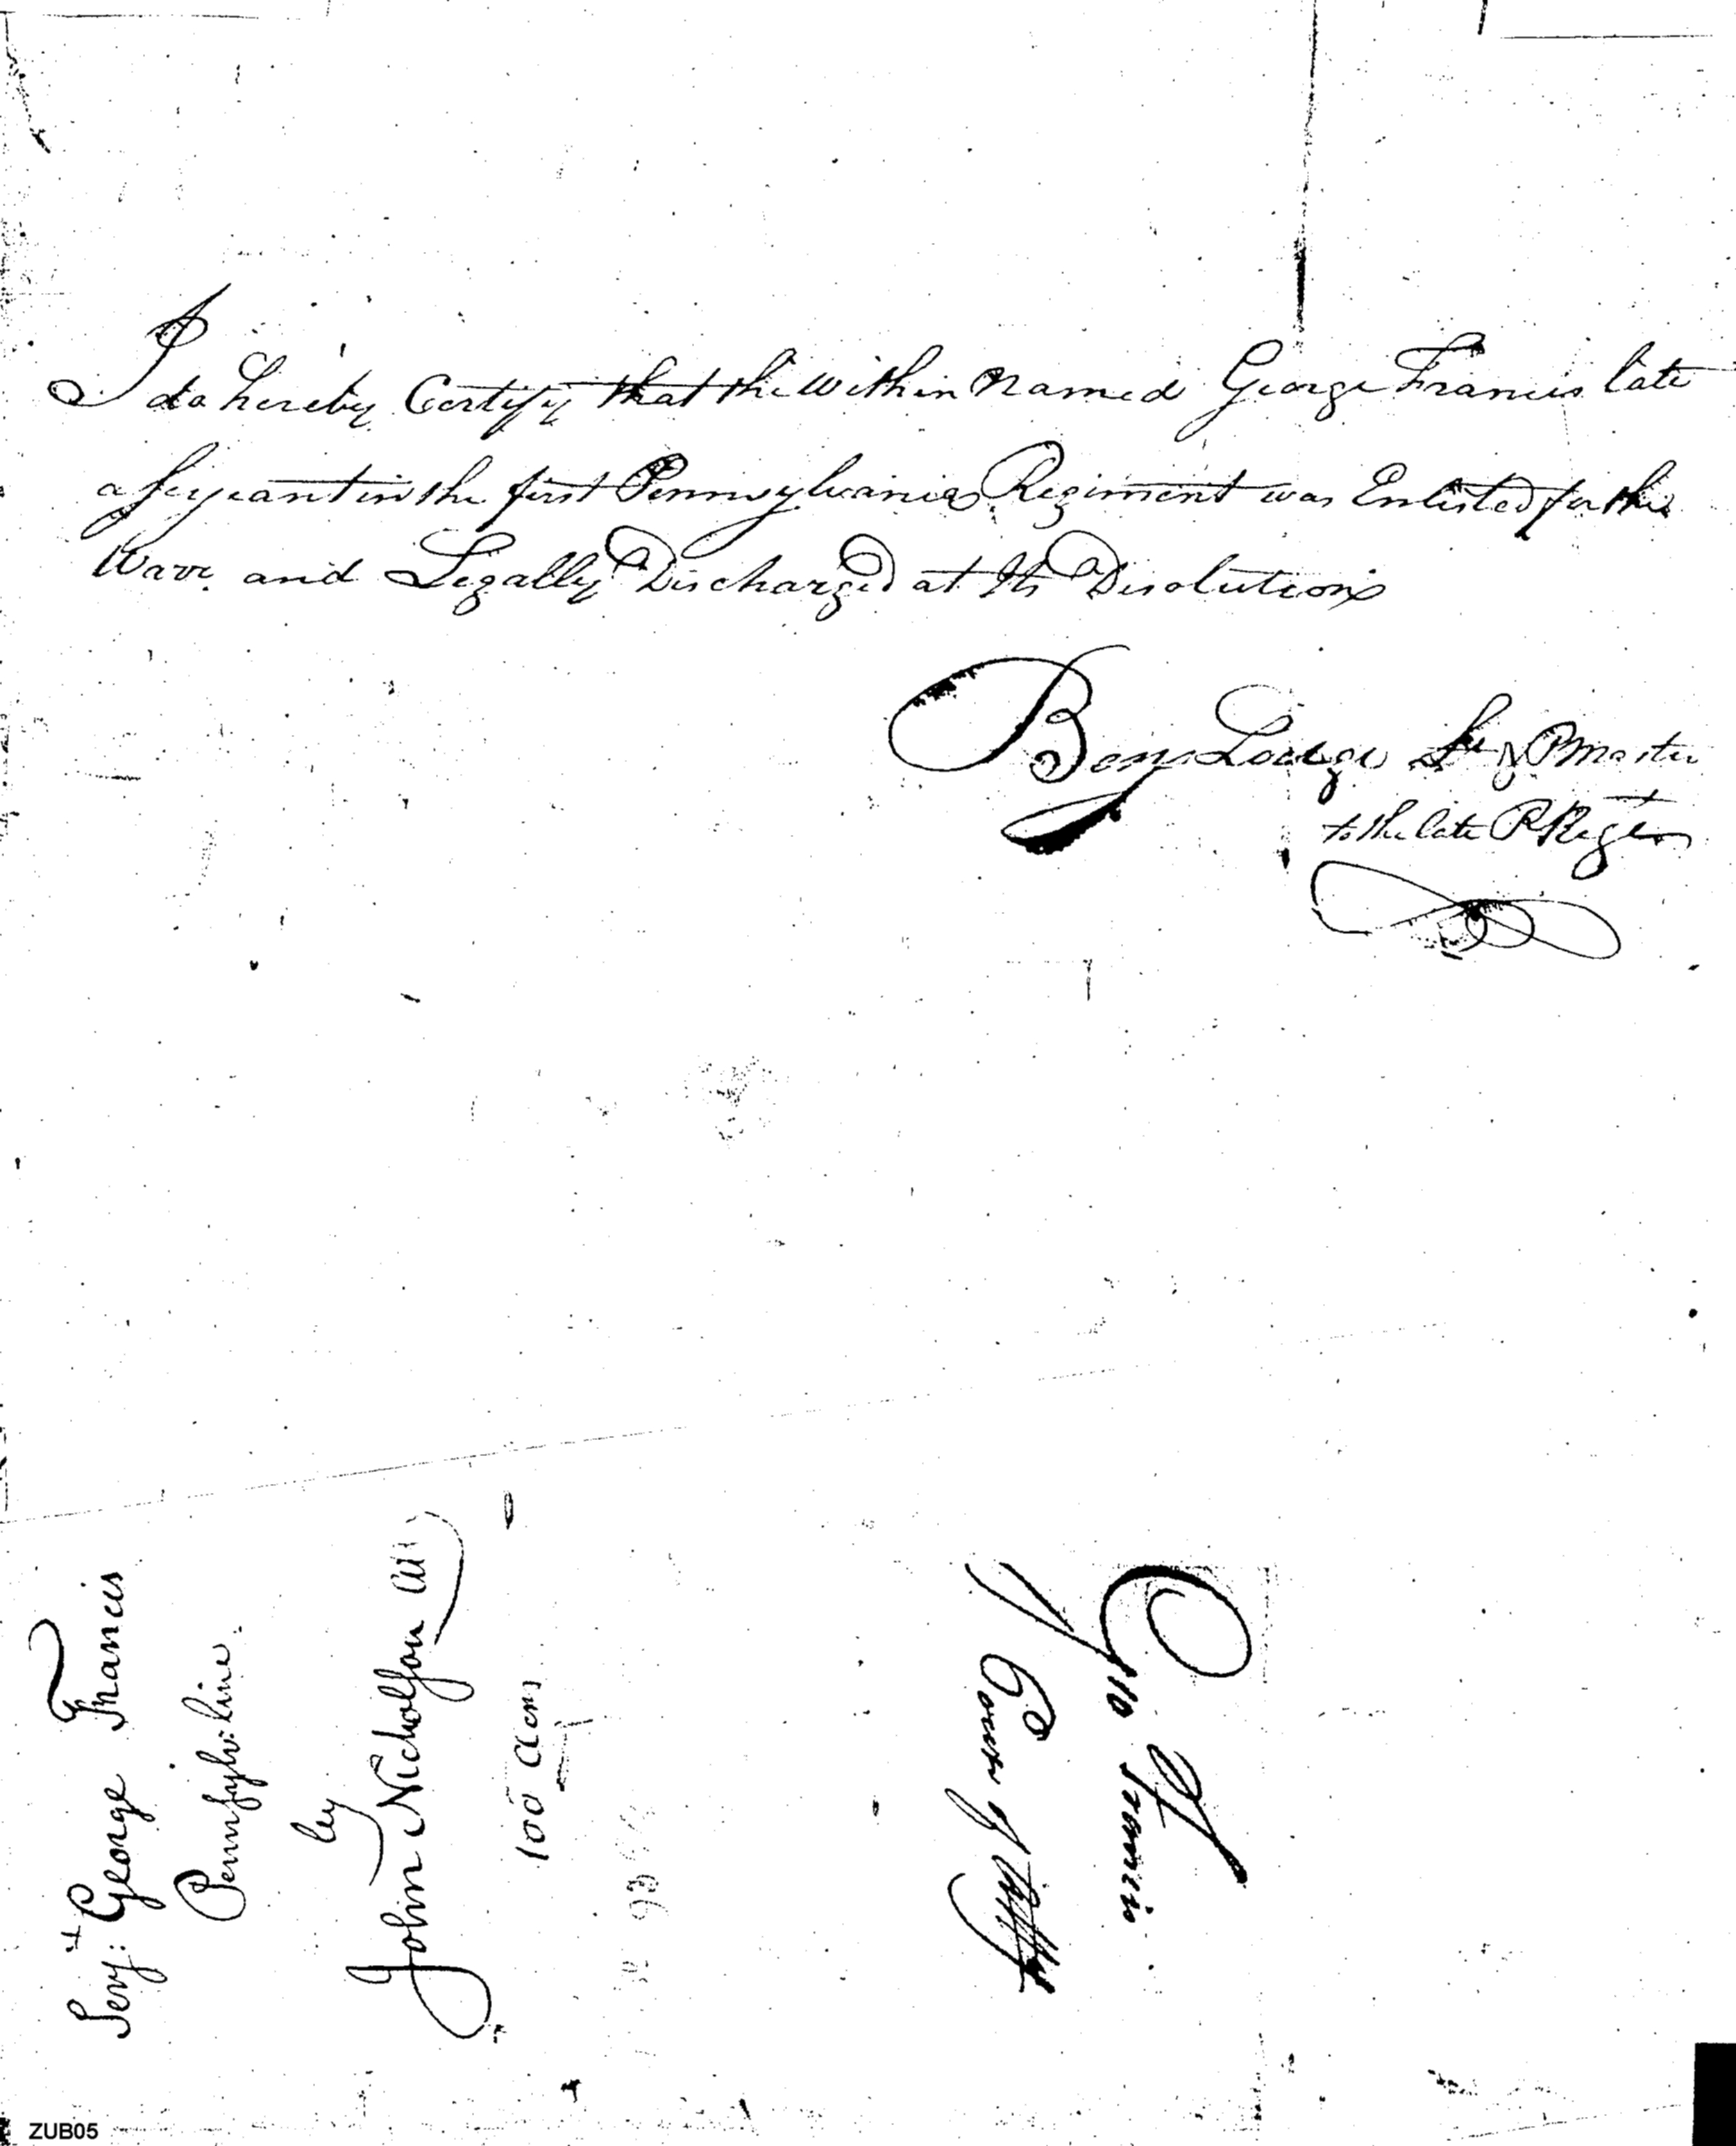 I do hereby Certify that the within Named George Francis late
a Serjeant in the first Pennsylvania Regiment was Enlisted for the
Warr and Legally Discharged at Its Disolution
Benj Lodge Lt & PMaster
to the late P Regt
Serjt: George Francis
Pennsylv: line.
by
John Nicholson
100 acres
Geo Francis
Power of Atty
ZUB05